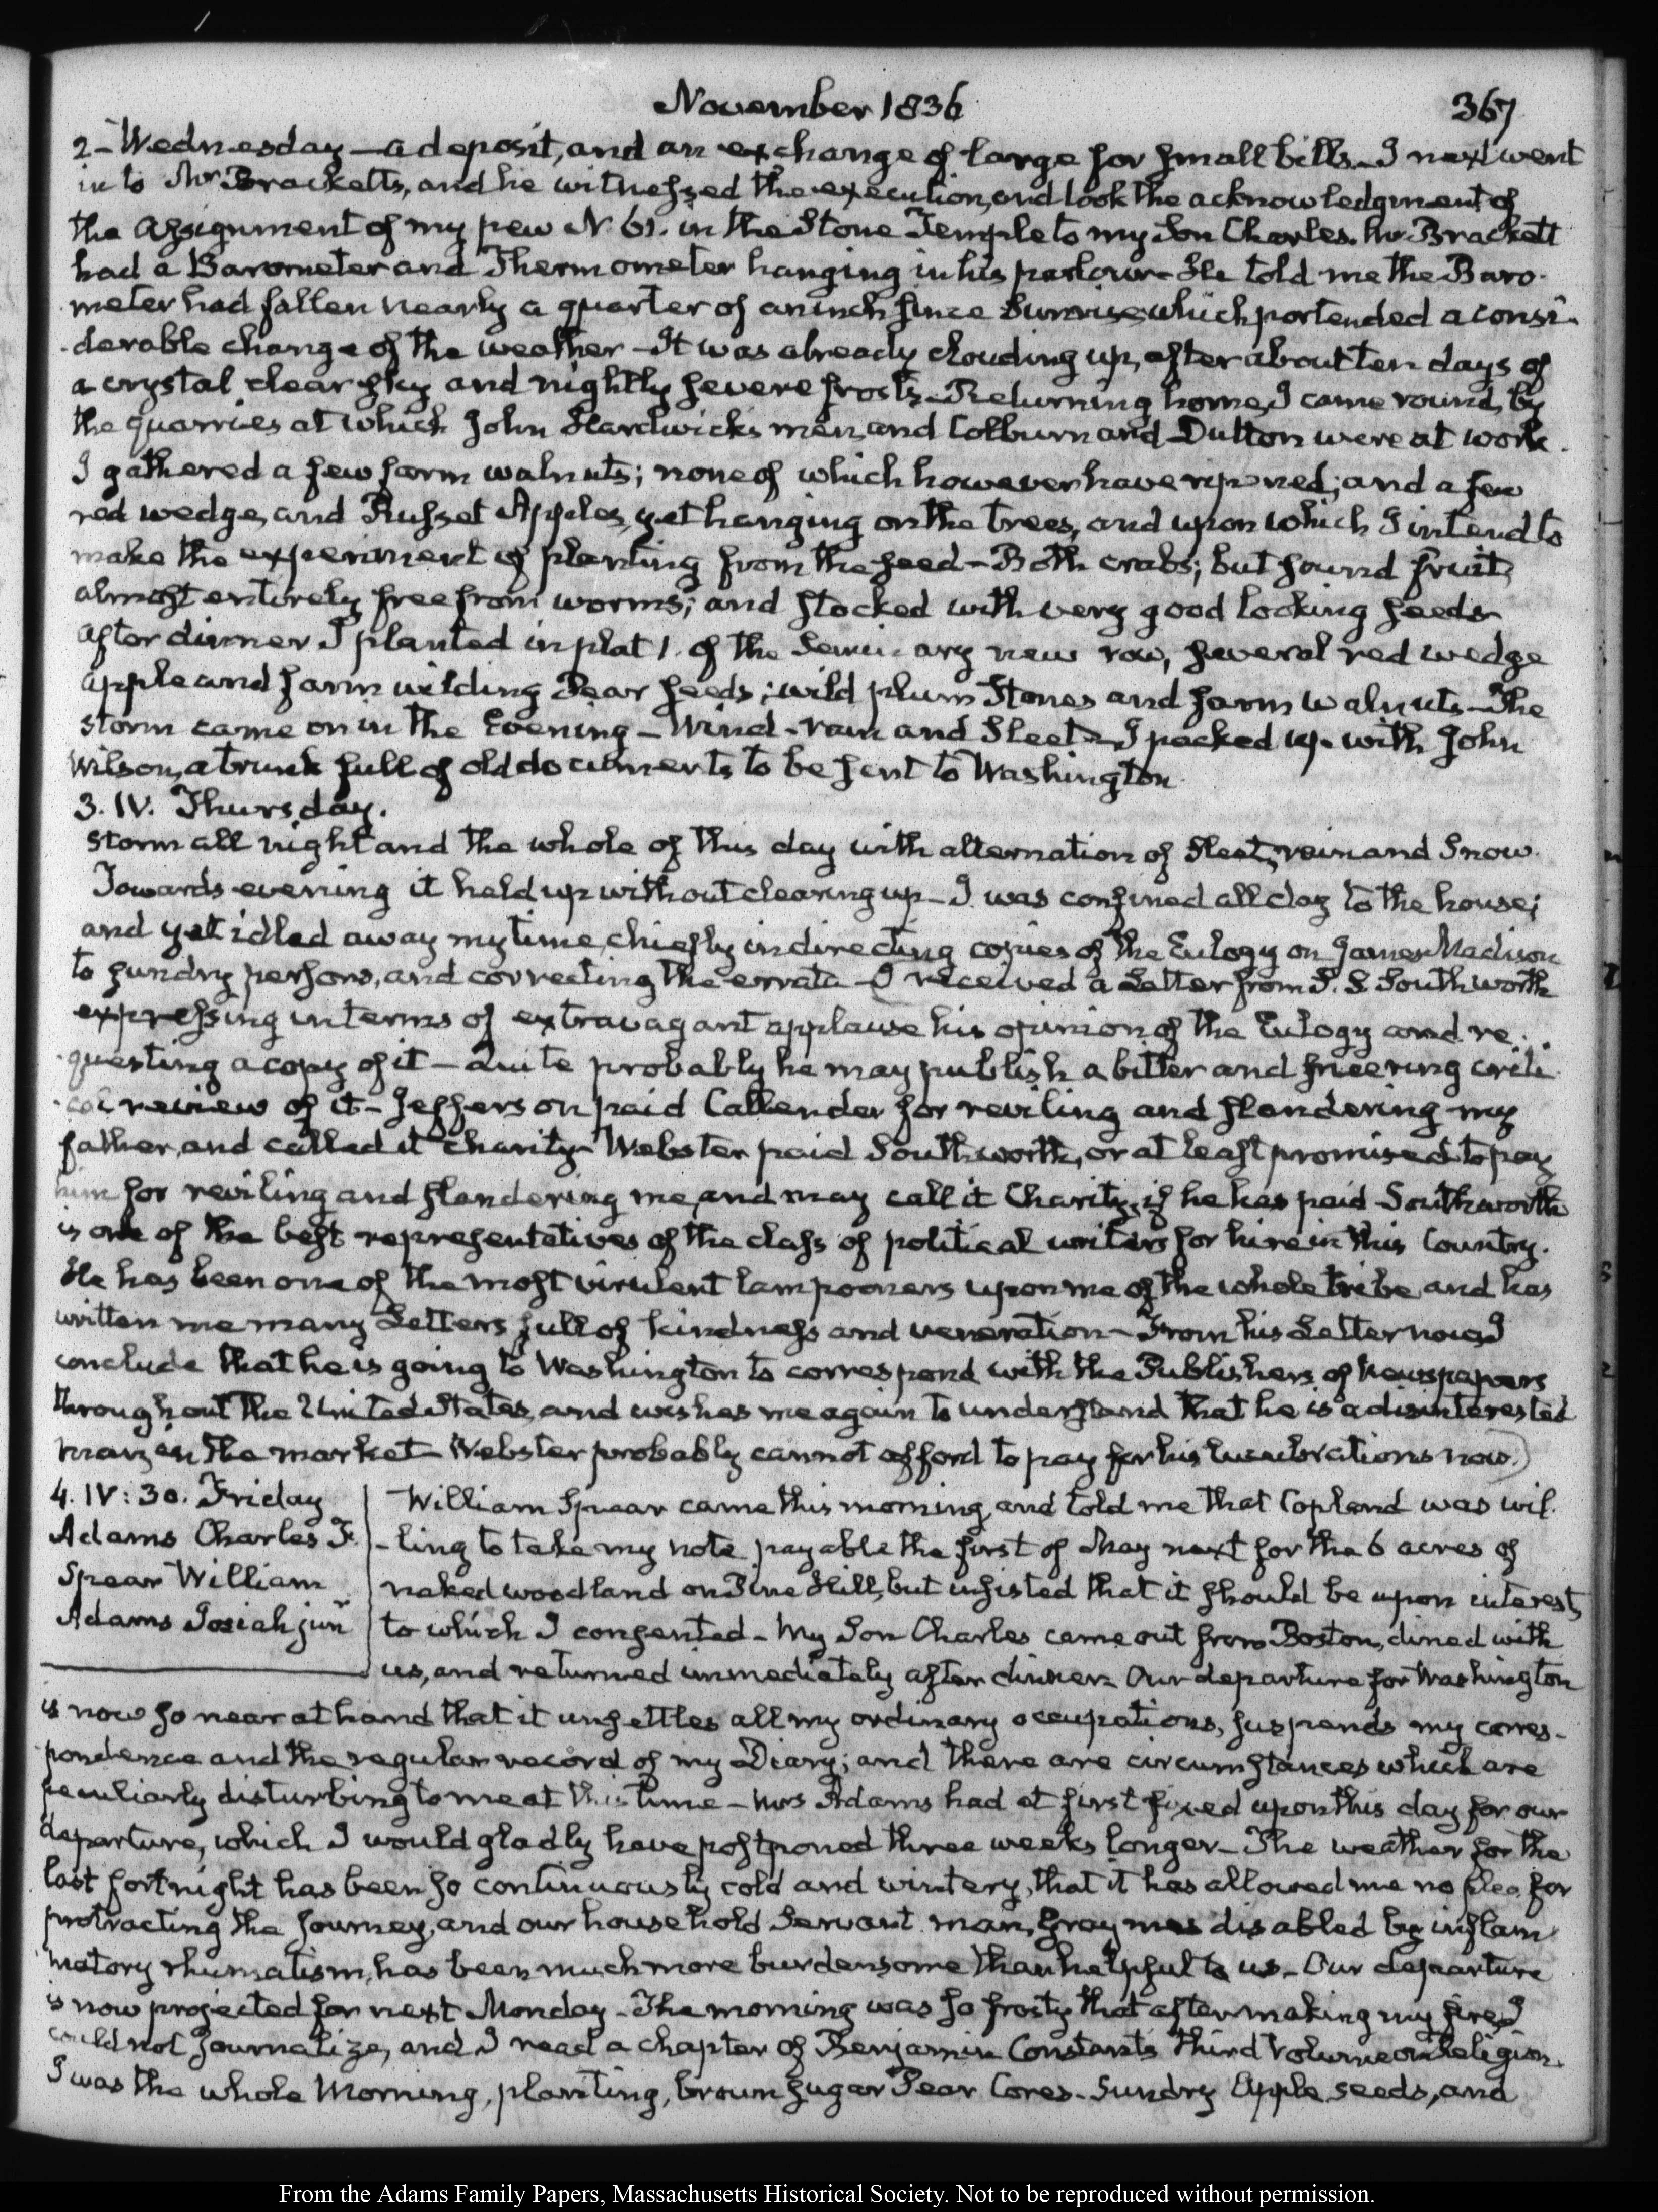 November 1836
367
2 - Wednesday - a deposit, and an exchange of large for small bills - I next went
in to Mr Bracketts, and he witnessed the execution, and took the acknowledgment of
the Assignment of my pew N. 61. in the Stone Temple to my Son Charles. Mr Brackett
had a Barometer and Thermometer hanging in his parlour - He told me the Baro-
meter had fallen nearly a quarter of an inch since Sunrise, which portended a consi-
-derable change of the weather - It was already clouding up, after about ten days of
a crystal clear sky and nightly severe frosts - Returning home, I came round, by
the quarries at which John Hardwick's men, and Colburn and Dutton were at work.
I gathered a few farm walnuts; none of which however have ripened; and a few
red wedge, and Russet Apples, yet hanging on the trees, and upon which I intend to
make the experiment of planting from the seed - Both crabs; but sound fruit,
almost entirely free from worms; and stocked with very good looking seeds -
After dinner I planted in plat 1. of the Seminary new row, several red wedge
apple and farm wilding Pear seeds; wild plum Stones and farm walnuts - The
storm came on in the Evening - Wind - rain and Sleet - I packed up with John
Wilson, a trunk full of old documents, to be sent to Washington.
3. IV. Thursday.
Storm all night and the whole of this day with alternation of Sleet, rain and Snow.
Towards evening it held up without clearing up - I was confined all day to the house;
and yet idled away my time, chiefly in directing copies of the Eulogy on James Madison
to sundry persons, and correcting the errata - I received a Letter from S. S. Southworth
expressing in terms of extravagant applause his opinion of the Eulogy and re-
-questing a copy of it - Quite probably he may publish a bitter and sneering criti-
-cal review of it - Jefferson paid Callender for reviling and slandering my
father, and called it charity - Webster paid Southworth, or at least promised to pay
him for reviling and slandering me, and may call it Charity, if he has paid - Southworth
is one of the best representatives of the class of political writers for hire in this Country.
He has been one of the most virulent lampooners upon me of the whole tribe and has
written me many Letters full of kindness and veneration - From his Letter now, I
conclude that he is going to Washington to correspond with the Publishers of Newspapers
throughout the United States, and wishes me again to understand that he is a disinterested
man, in the market - Webster probably cannot afford to pay for his lucubrations now.)
4. IV: 30. Friday
Adams Charles F.
Spear William
Adams Josiah junr
William Spear came this morning, and told me that Copland was wil-
-ling to take my note payable the first of May next for the 6 acres of
naked woodland on Pine Hill, but insisted that it should be upon interest,
to which I consented - My Son Charles came out from Boston, dined with
us, and returned immediately after dinner. Our departure for Washington
is now so near at hand that it unsettles all my ordinary occupations, suspends my corres-
pondence and the regular record of my Diary; and there are circumstances which are
peculiarly disturbing to me at this time - Mrs Adams had at first fixed upon this day for our
departure, which I would gladly have postponed three weeks longer - The weather for the
last fortnight has been so continuously cold and wintery, that it has allowed me no plea for
protracting the Journey, and our household Servant man, Gray disabled by inflam-
matory rhumatism, has been much more burdensome than helpful to us - Our departure
is now projected for next Monday - The morning was so frosty that after making my fire, I
could not Journalize, and I read a chapter of Benjamin Constant's third Volume on Religion.
I was the whole Morning, planting, brown sugar Pear Cores - Sundry Apple seeds, and
From the Adams Family Papers, Massachusetts Historical Society. Not to be reproduced without permission.